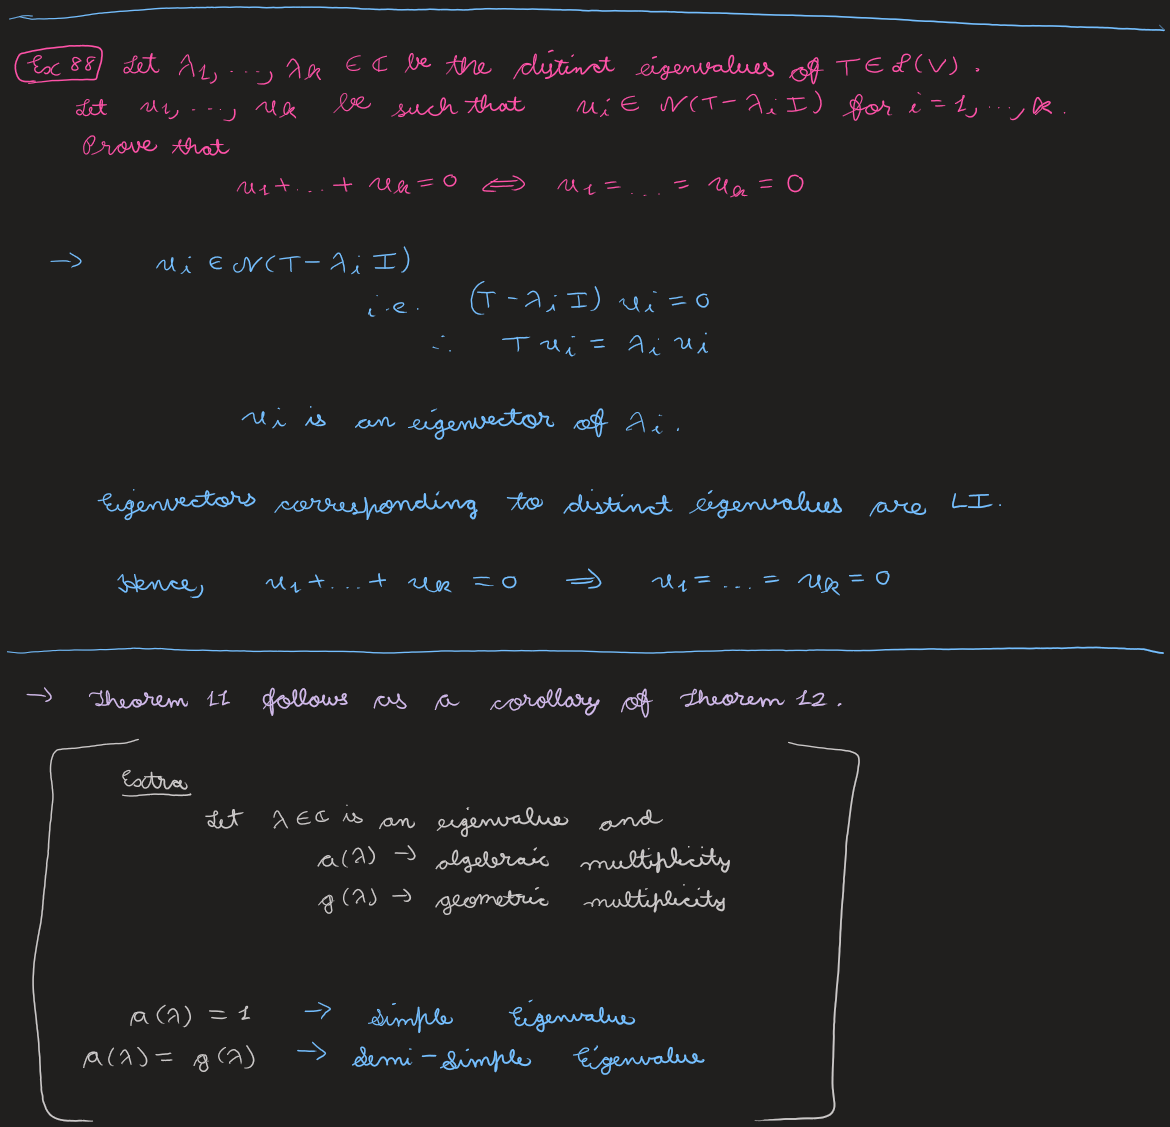 Ex 88 Let λ1, ..., λk ∈ ℂ be the distinct eigenvalues of T ∈ ℒ(V).
Let u1, ..., uk be such that ui ∈ N(T - λi I) for i = 1, ..., k.
Prove that
u1 + ... + uk = 0 ⟺ u1 = ... = uk = 0
→ ui ∈ N(T - λi I)
i.e. (T - λi I) ui = 0
∴ T ui = λi ui
ui is an eigenvector of λi.
Eigenvectors corresponding to distinct eigenvalues are LI.
Hence, u1 + ... + uk = 0 ⟹ u1 = ... = uk = 0
→ Theorem 11 follows as a corollary of Theorem 12.
Extra
Let λ ∈ ℂ is an eigenvalue and
a(λ) → algebraic multiplicity
g(λ) → geometric multiplicity
a(λ) = 1 → Simple Eigenvalue
a(λ) = g(λ) → Semi-Simple Eigenvalue